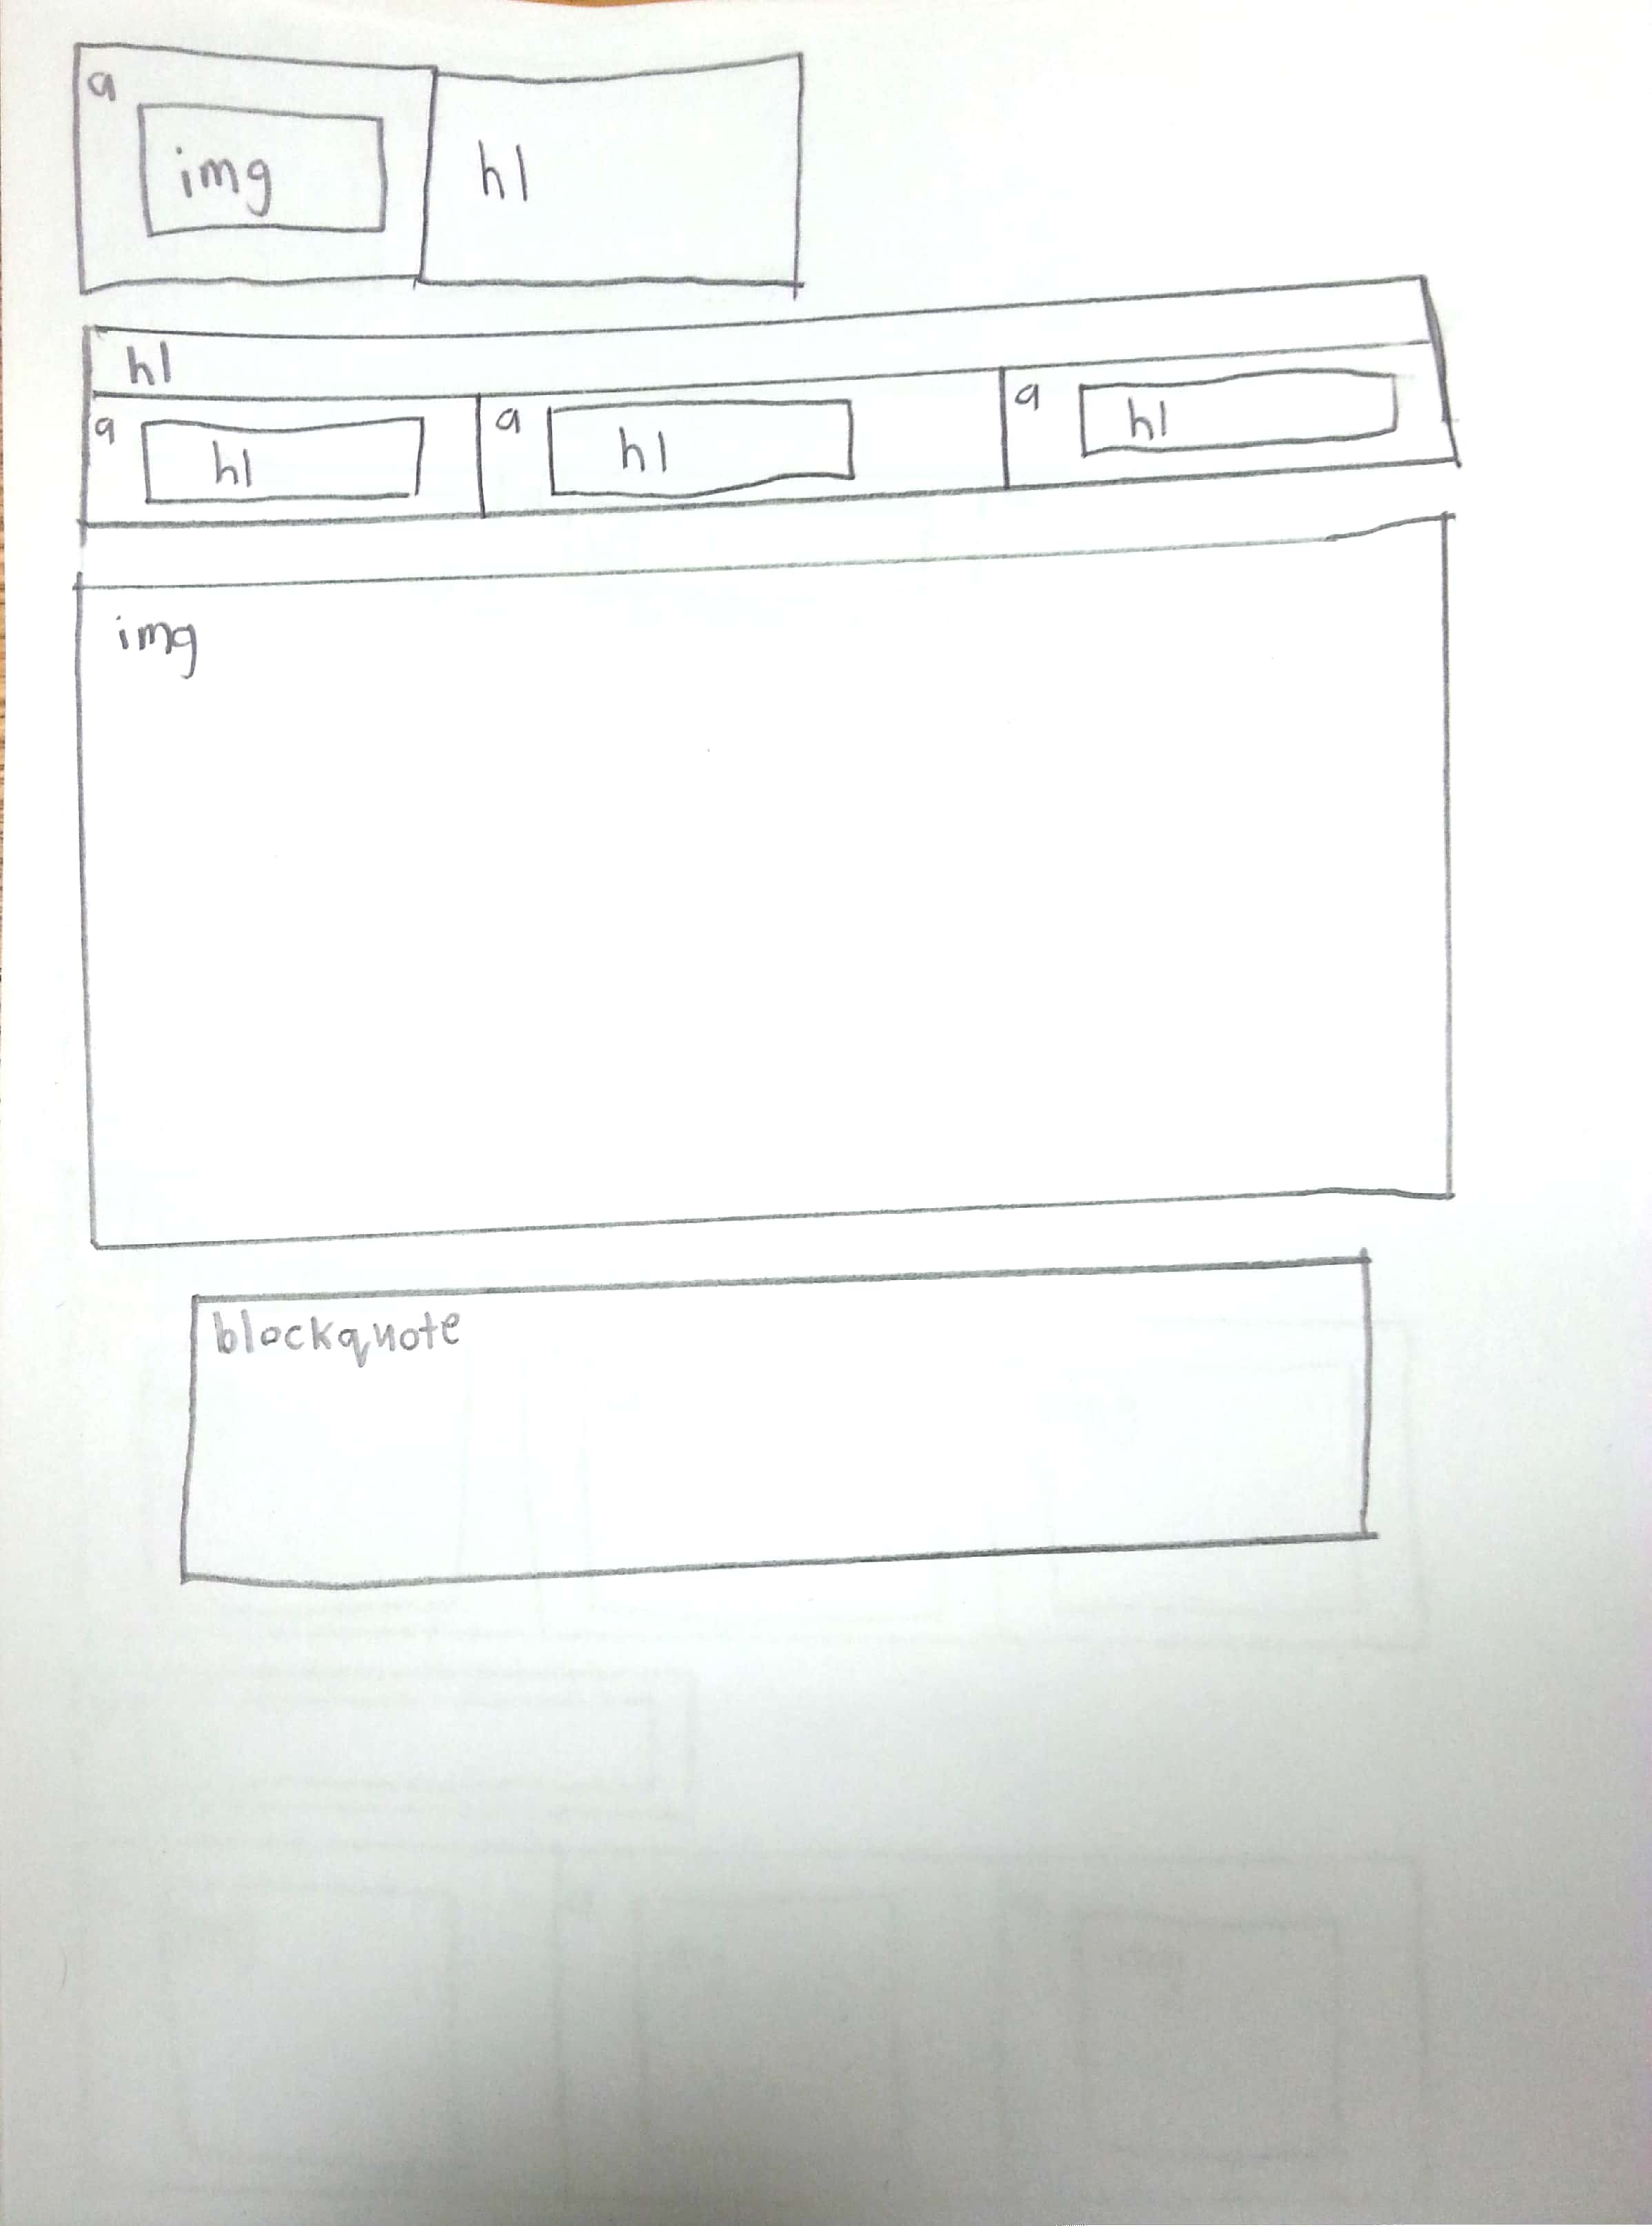 a
img
h1
h1
a
h1
a
h1
a
h1
img
blockquote